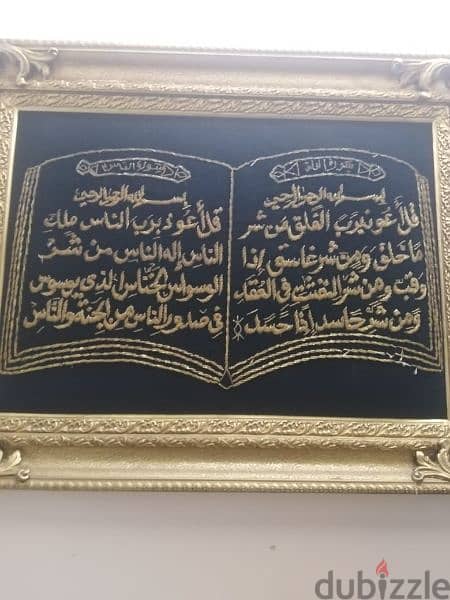 سورة الفلق
بسم الله الرحمن الرحيم
قل أعوذ برب الفلق من شر
ما خلق ومن شر غاسق إذا
وقب ومن شر النفثت في العقد
ومن شر حاسد إذا حسد
سورة الناس
بسم الله الرحمن الرحيم
قل أعوذ برب الناس ملك
الناس إله الناس من شر
الوسواس الخناس الذي يوسوس
في صدور الناس من الجنة والناس
dubizzle